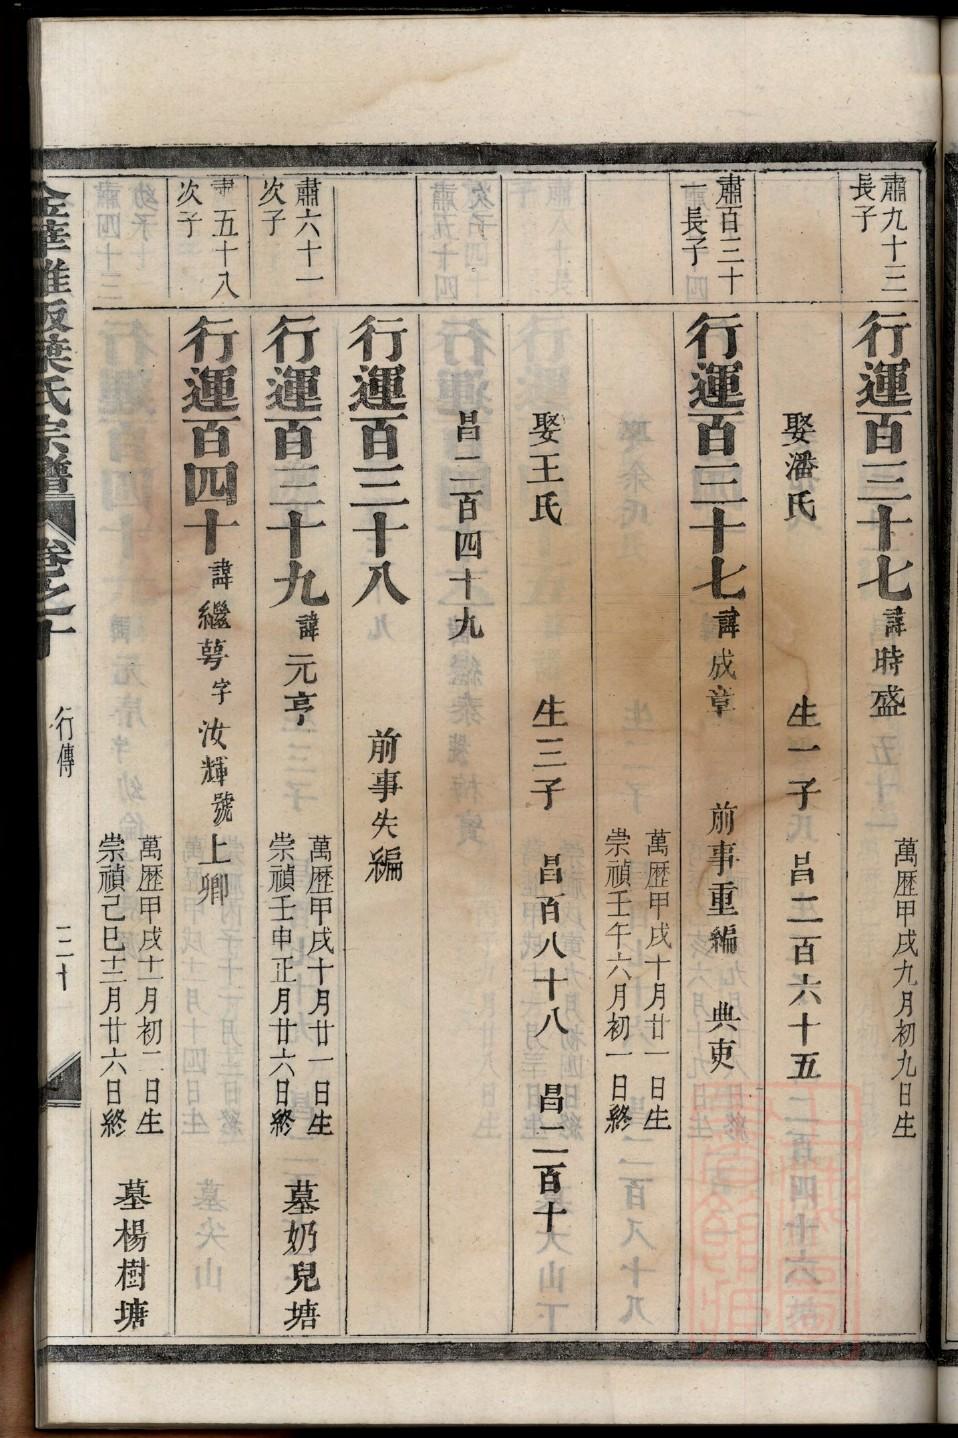 肅九十三
長子
行運百三十七 諱時盛 萬歷甲戌九月初九日生
娶潘氏 生一子 昌二百六十五
肅百三十一
長子
行運百三十七 諱成章 前事重編 典吏
萬歷甲戌十月廿一日生
崇禎壬午六月初一日終
娶王氏 生三子 昌百八十八 昌二百十
昌二百四十九
行運百三十八 前事失編
肅六十一
次子
行運百三十九 諱元亨 萬歷甲戌十月廿一日生
崇禎壬申正月廿六日終 墓奶兒塘
肅五十八
次子
行運百四十 諱繼萼字汝輝號上卿
萬歷甲戌十一月初二日生
崇禎己巳十二月廿六日終 墓楊樹塘
葉氏宗譜 卷之十 行傳 三十